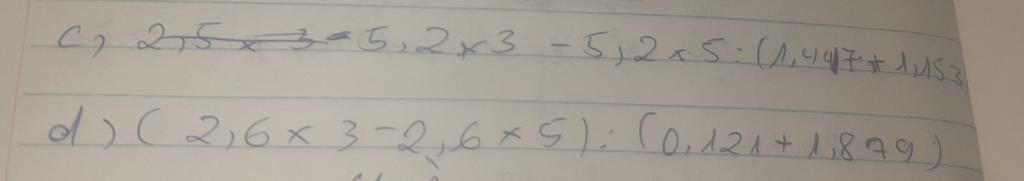 c, 5,2 x 3 - 5,2 x 5 : (1,447 + 1,153)
d) ( 2,6 x 3 - 2,6 x 5) : (0,121 + 1,879)